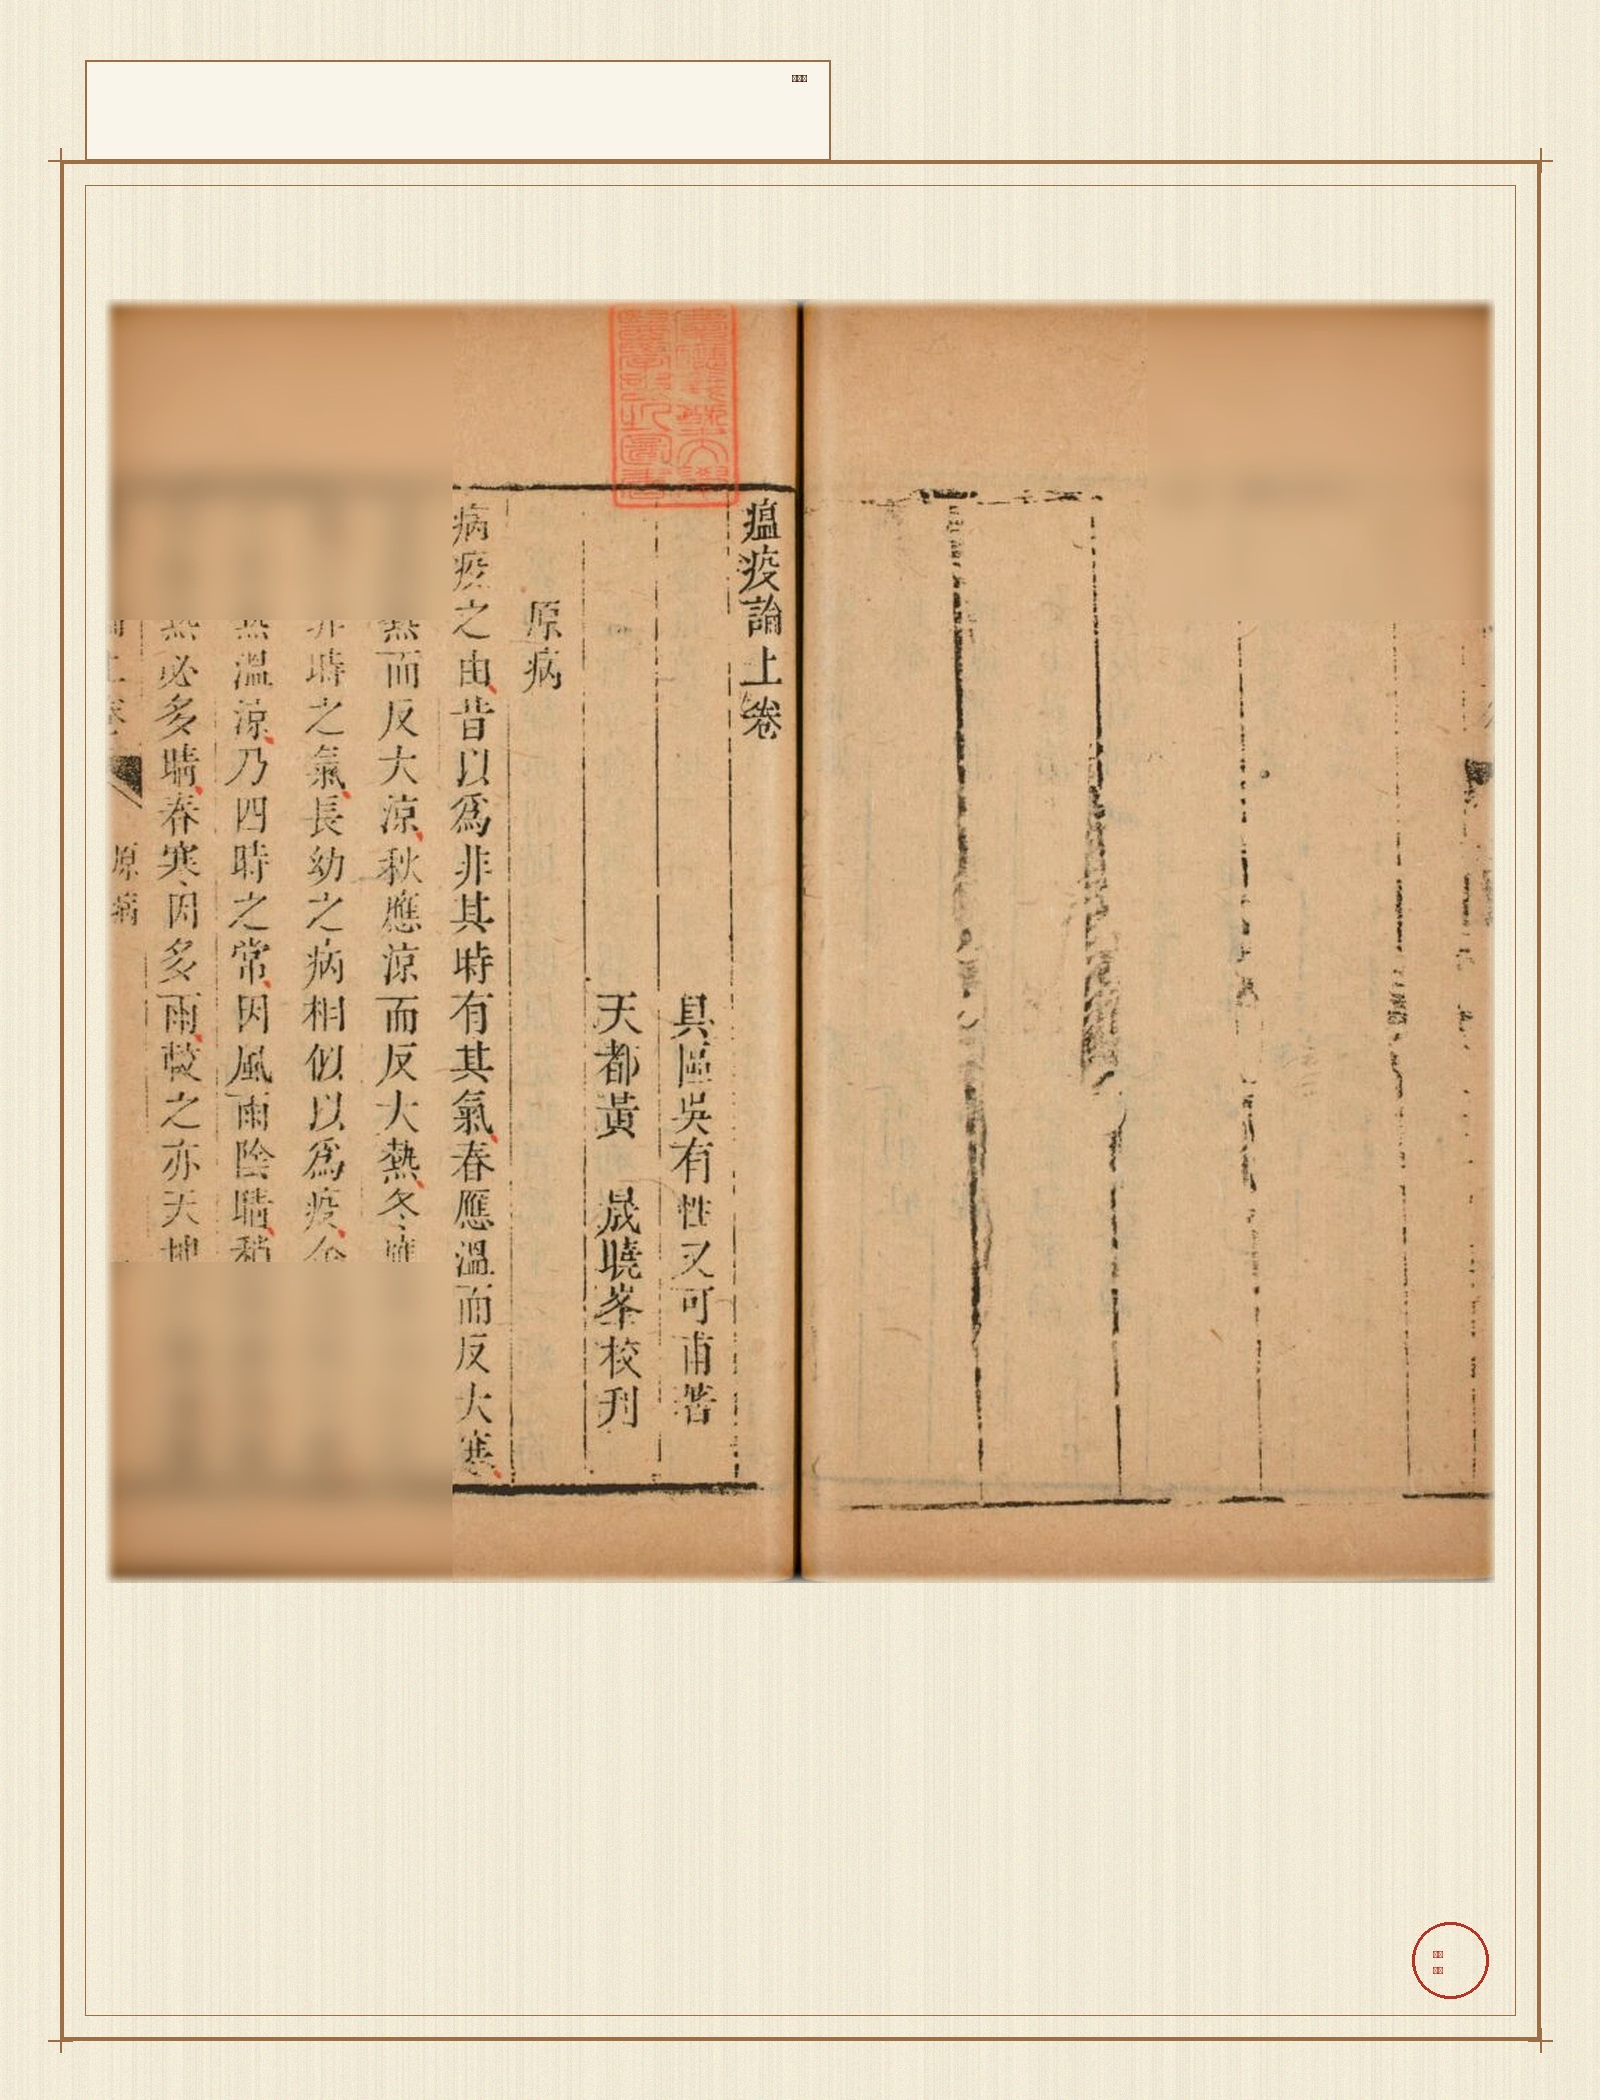 瘟疫論上卷
具區吳有性又可甫著
天都黃晟曉峯校刋
原病
病疫之由昔以為非其時有其氣春應溫而反大寒
熱而反大涼秋應涼而反大熱冬應
非時之氣長幼之病相似以為疫余
熱溫涼乃四時之常因風雨陰晴稍
熱必多晴春寒因多雨較之亦天地
原病